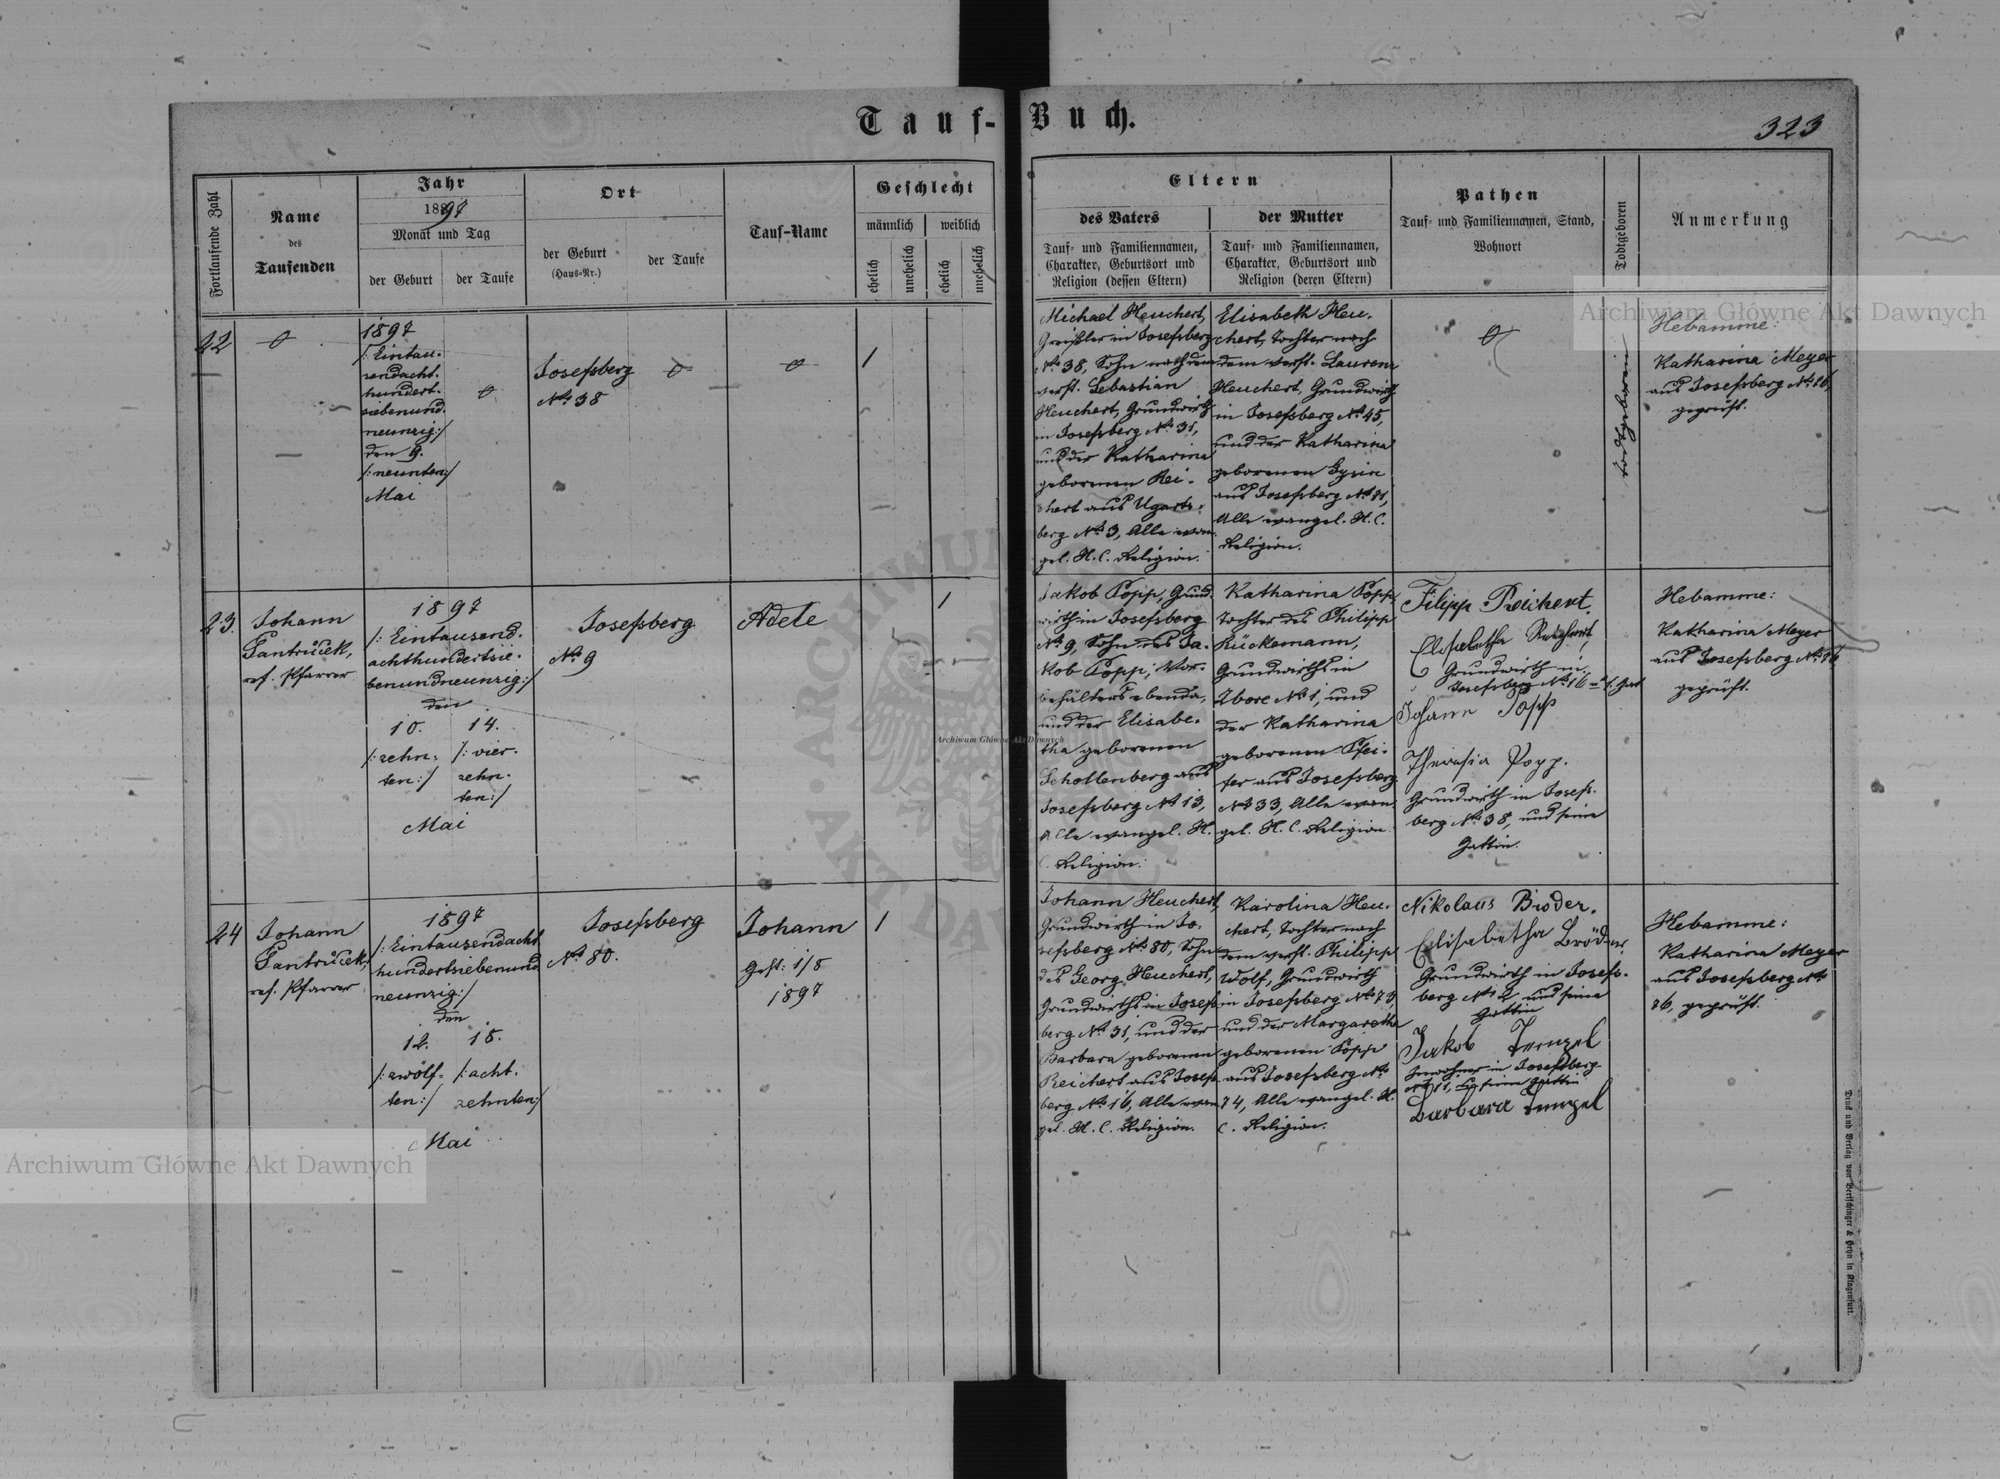 Tauf-Buch.
323
Fortlaufende Zahl
Name
des
Taufenden
Jahr
1897
Monat und Tag
der Geburt
der Taufe
Ort
der Geburt
(Haus-Nr.)
der Taufe
Tauf-Name
Geschlecht
männlich
weiblich
ehelich
unehelich
ehelich
unehelich
Eltern
des Vaters
Tauf- und Familiennamen,
Charakter, Geburtsort und
Religion (dessen Eltern)
der Mutter
Tauf- und Familiennamen,
Charakter, Geburtsort und
Religion (deren Eltern)
Pathen
Tauf- und Familiennamen, Stand,
Wohnort
Todtgeboren
Anmerkung
22
1897
/: Eintau-
sendacht-
hundert-
siebenund-
neunzig:/
den 9.
/: neunten:/
Mai
Josefsberg
No 38
1
Michael Heuchert,
Greißler in Josefsberg
No 38, Sohn nach dem
verst. Sebastian
Heuchert, Grundwirth
in Josefsberg No 31,
und der Katharina
geborenen Rei-
chert aus Ugarts-
berg No 3, Alle evan-
gel. H. C. Religion.
Elisabeth Heu-
chert, Tochter nach
dem verst. Laurenz
Heuchert, Grundwirth
in Josefsberg No 45,
und der Katharina
geborenen
aus Josefsberg No 81,
Alle evangel. H. C.
Religion.
todtgeboren
Hebamme:
Katharina Meyer
aus Josefsberg No 16,
geprüft.
23.
Johann
Pantrůček,
ref. Pfarrer
1897
/: Eintausend-
achthundertsie-
benundneunzig:/
den
10. 14.
/: zehn- /: vier-
ten:/ zehn-
ten:/
Mai
Josefsberg
No 9
Adele
1
Jakob Popp, Grund-
wirth in Josefsberg
No 9, Sohn des Ja-
kob Popp, Vor-
behälters ebenda,
und der Elisabe-
tha geborenen
Schollenberg aus
Josefsberg No 13,
Alle evangel. H.
C. Religion.
Katharina Popp,
Tochter des Philipp
Rückemann,
Grundwirths in
Zbore No 1, und
der Katharina
geborenen Pfei-
fer aus Josefsberg
No 33, Alle evan-
gel. H. C. Religion.
Filipp Reichert.
Elisabetha Reichert,
Grundwirth in
Josefsberg No 16
Johann Popp
Theresia Popp.
Grundwirth in Josefs-
berg No 38, und seine
Gattin.
Hebamme:
Katharina Meyer
aus Josefsberg No 16
geprüft.
24
Johann
Pantrůček,
ref. Pfarrer
1897
/: Eintausendacht-
hundertsiebenund-
neunzig:/
den
12. 18.
/: zwölf- /: acht-
ten:/ zehnten:/
Mai
Josefsberg
No 80.
Johann
Gest: 1/8
1897
1
Johann Heuchert,
Grundwirth in Jo-
sefsberg No 80, Sohn
des Georg Heuchert,
Grundwirths in Josefs-
berg No 31, und der
Barbara geborenen
Reichert aus Josefs-
berg No 16, Alle evan-
gel. H. C. Religion.
Karolina Heu-
chert, Tochter nach
dem verst. Philipp
Wolf, Grundwirth
in Josefsberg No 73,
und der Margaretha
geborenen Popp
aus Josefsberg No
74, Alle evangel. H.
C. Religion.
Nikolaus Bröder.
Elisabetha Bröder
Grundwirth in Josefs-
berg No 2 und seine
Gattin
Jakob
in Josefsberg
Gattin
Barbara
Hebamme:
Katharina Meyer
aus Josefsberg No
16, geprüft.
Druck und Verlag von Bertschinger & Heyn in Klagenfurt.
Archiwum Główne Akt Dawnych
Archiwum Główne Akt Dawnych
Archiwum Główne Akt Dawnych
ARCHIWUM
AKT DAWNYCH